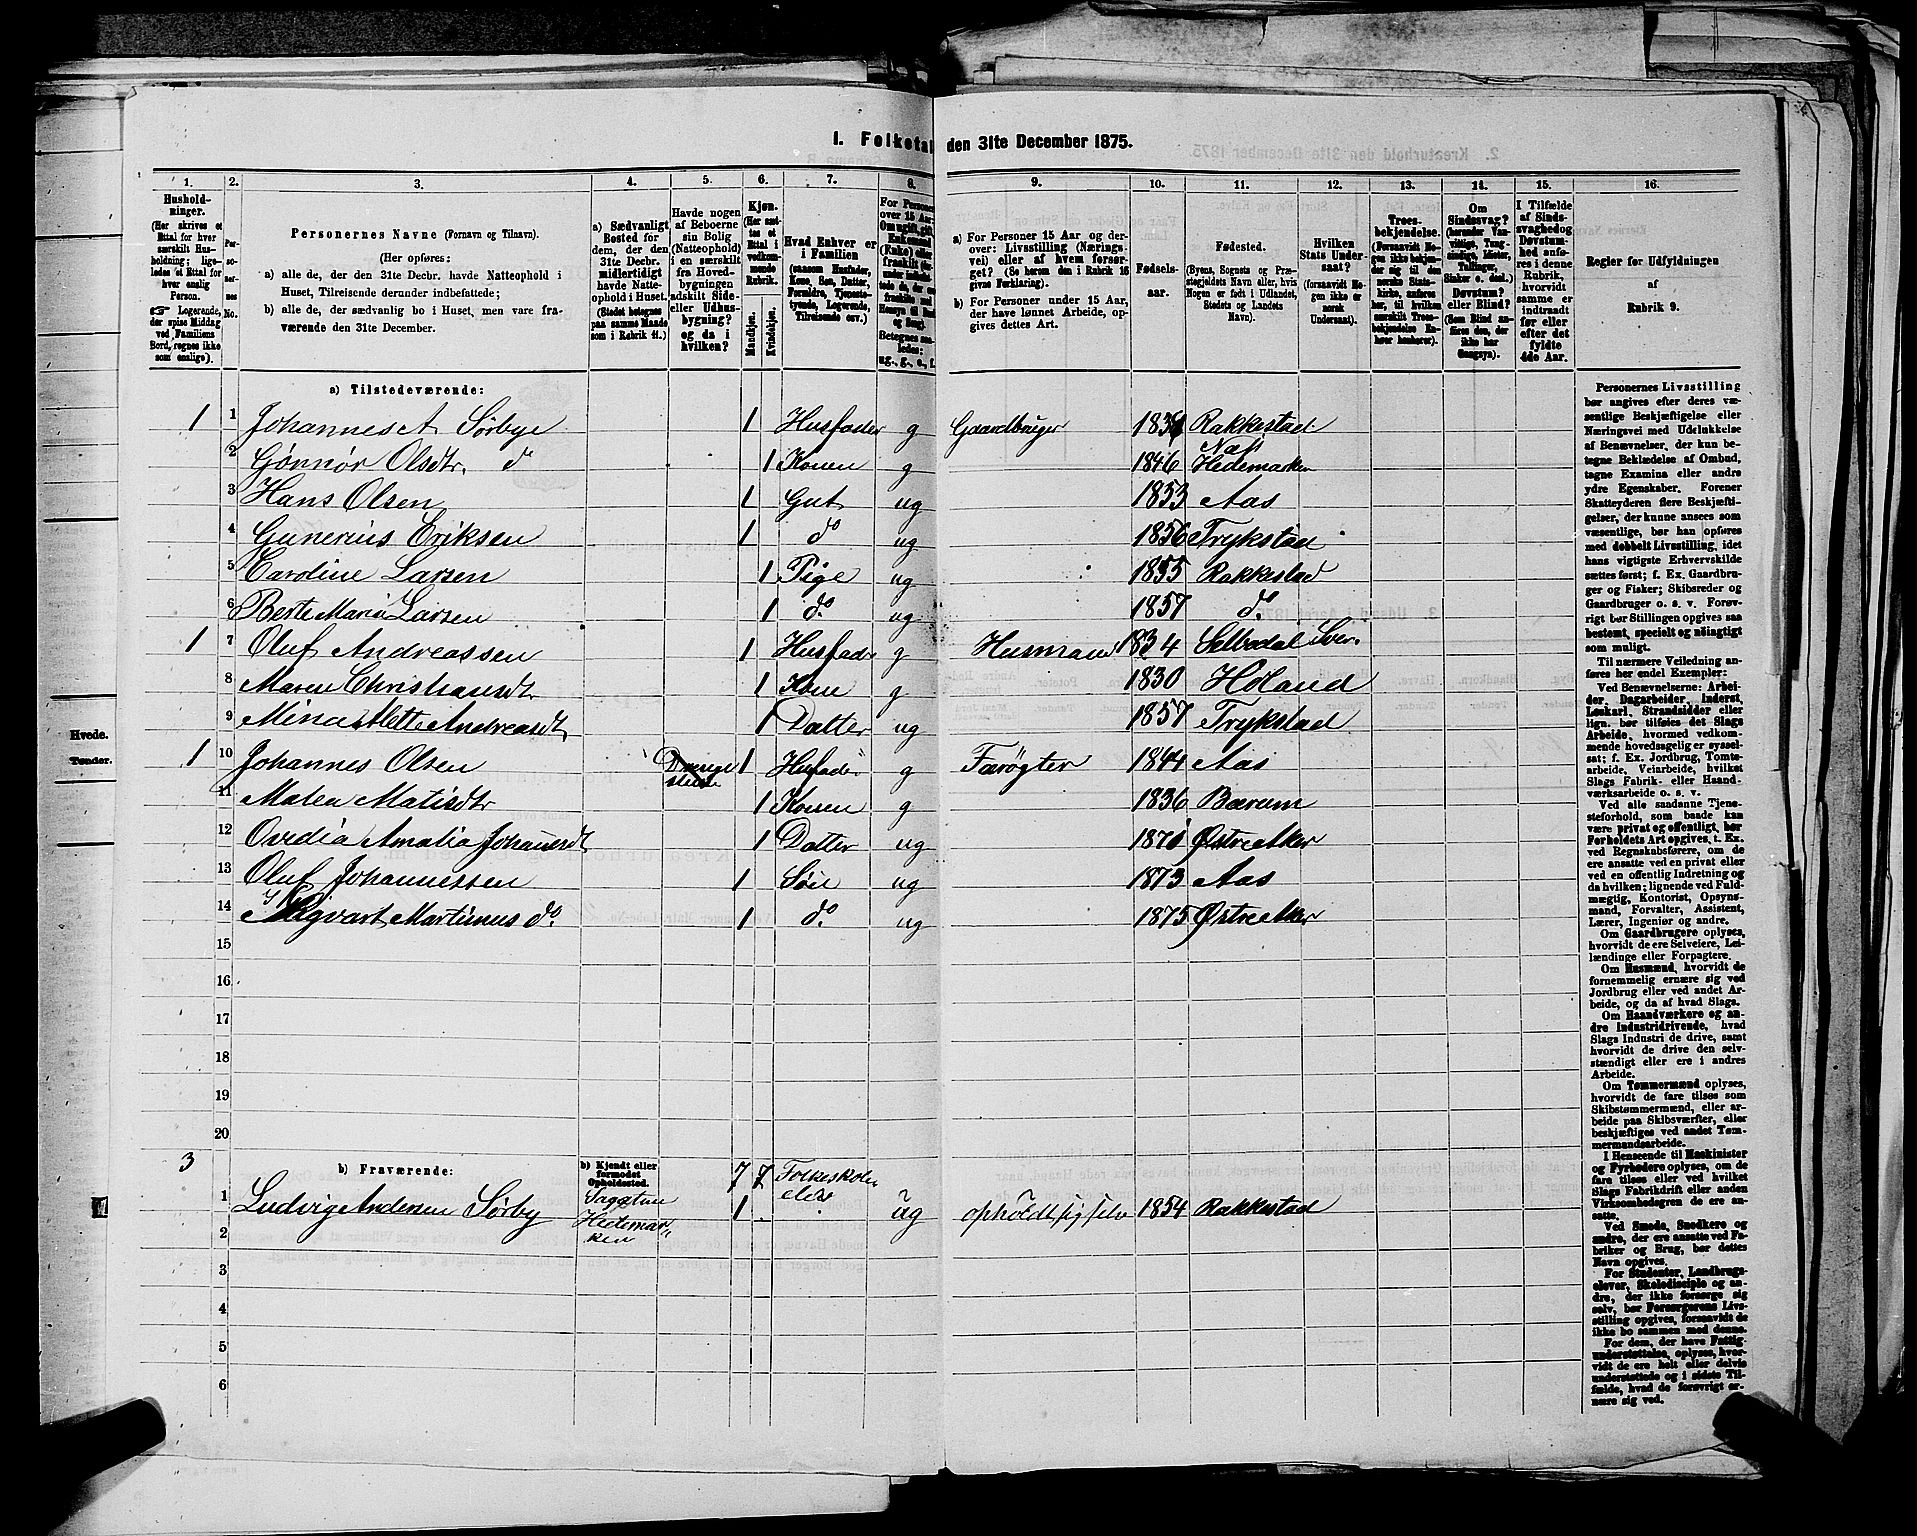 I. Folketal den 31te December 1875.
1. Husholdninger. (Her skrives et Ettal for hver særskilt Husholdning; ligeledes et Ettal for hver enlig Person. ☞ Logerende, der spise Middag ved Familiens Bord, regnes ikke som enlige).
2. Personernes No.
3. Personernes Navne (Fornavn og Tilnavn).
(Her opføres:
a) alle de, der den 31te Decbr. havde Natteophold i Huset, Tilreisende derunder indbefattede;
b) alle de, der sædvanlig bo i Huset, men vare fraværende den 31te December.
4. a) Sædvanligt Bosted for dem, der den 31te Decbr. midlertidigt havde Natteophold i Huset. (Stedet betegnes paa samme Maade som i Rubrik 11.)
5. Havde nogen af Beboerne sin Bolig (Natteophold) i en særskilt fra Hovedbygningen adskilt Side- eller Udhusbygning? og da i hvilken?
6. Kjøn. (Her sættes et Ettal i vedkommende Rubrik. Mandkjøn. Kvindekjøn.
7. Hvad Enhver er i Familien (saasom Husfader, Kone, Søn, Datter, Forældre, Tjenestetyende, Logerende, Tilreisende osv.)
8. For Personer over 15 Aar:
9. a) For Personer 15 Aar og derover: Livsstilling (Næringsvei) eller af hvem forsørget? (Se herom den i Rubrik 16 givne Forklaring).
b) For Personer under 15 Aar, der have lønnet Arbeide, opgives dettes Art.
10. Fødselsaar.
11. Fødested. (Byens, Sognets og Præstegjeldets Navn, eller, hvis Nogen er født i Udlandet, Stedets og Landets Navn).
12. Hvilken Stats Undersaat? (forsaavidt Nogen ikke er norsk Undersaat).
13. Troesbekjendelse. (Forsaavidt Nogen ikke bekjender sig til den norske Statskirke, anføres her, til hvilken særskilt Troesbekjendelse Enhver henhører).
14. Om Sindssvag? (herunder Vanvittige, Tungsindige, Idioter, Tullinger, Sinker o. desl.) Døvstum? eller Blind? (Som Blind anføres den, der ikke har Gangsyn).
15. I Tilfælde af Sindssvaghed og Døvstumhed anføres i denne Rubrik, hvorvidt samme er indtraadt før eller efter det fyldte 4de Aar.
16. Regler for Udfyldningen af Rubrik 9.
a) Tilstedeværende:
1 1 Johannes A Sørbye 1 Husfader g Gaardbruger 1831 Rakkestad
2 Gönnör Olsdtr. do 1 Konen g 1846 Næs Hedemarken
3 Hans Olsen 1 Gut ug 1853 Aas
4 Gunerius Eriksen 1 do ug 1856 Trykstad
5 Caroline Larsen 1 Pige ug 1855 Rakkestad
6 Berte Maria Larsen 1 do. ug 1857 do.
1 7 Oluf Andreassen 1 Husfader g Husmand 1834 Selbodal Sver.
8 Maren Christiansdtr 1 Kone g 1830 Höland
9 Mina Mette Andreasdt 1 Datter ug 1857 Trykstad
1 10 Johannes Olsen 1 Husfader g Færögter 1844 Aas
11 Malen Matisdtr 1 Konen g 1836 Bærum
12 Ovedia Amalia Johannesdt 1 Datter ug 1871 Østre Aker
13 Oluf Johannessen 1 Sön ug 1873 Aas
14 Sigvart Martinus do. 1 do. ug 1875 Østre Aker
15
16
17
18
19
20
3 b) Fraværende: b) Kjendt eller formodet Opholdssted. 7 7
1 Ludvig Andersen Sørby Sagatun Hedemarken 1 Folkeskoleelev ug opholdt sig selv 1854 Rakkestad
2
3
4
5
6
Personernes Livsstilling
bør angives efter deres væ-
sentlige Beskjæftigelse eller
Næringsvei med Udelukkelse
af Benævnelser, der kun be-
tegne Beklædelse af Ombud,
tagne Examina eller andre
ydre Egenskaber. Forener
Skatteyderen flere Beskjæfti-
gelser, der kunne ansees som
væsentlige, bør han opføres
med dobbelt Livsstilling, idet
hans vigtigste Erhvervskilde
sættes først; f. Ex. Gaardbru-
ger og Fisker; Skibsreder og
Gaardbruger o. s. v. Forøv-
rigt bør Stillingen opgives saa
bestemt, specielt og nøiagtigt
som muligt.
Til nærmere Veiledning an-
føres her endel Exempler:
Ved Benævnelserne: Arbei-
der, Dagarbeider, Inderst,
Løskarl, Strandsidder eller
lign. bør tilføies det Slags
Arbeide, hvormed vedkom-
mende hovedsagelig er syssel-
sat; f. Ex. Jordbrug, Tomte-
arbeide, Veiarbeide, hvilket
Slags Fabrik- eller Haand-
værksarbeide o. s. v.
Ved alle saadanne Tjene-
steforhold, som baade kan
være privat og offentligt, bør
Forholdets Art opgives, t. Ex.
ved Regnskabsførere, om de
ere ansatte ved en privat eller
ved en offentlig Indretning og
da hvilken; lignende ved Fuld-
mægtig, Kontorist, Opsyns-
mand, Forvalter, Assistent,
Lærer, Ingeniør og andre.
Om Gaardbrugere oplyses,
hvorvidt de ere Selveiere, Lei-
lændinge eller Forpagtere.
Om Husmænd, hvorvidt de
fornemmelig ernære sig ved
Jordbrug eller ved andet Ar-
beide, og da af hvad Slags.
Om Haandværkere og an-
dre Industridrivende, hvad
Slags Industri de drive, samt
hvorvidt de drive den selv-
stændigt eller ere i andres
Arbeide.
Om Tømmermænd oplyses,
hvorvidt de fare tilsøs som
Skibstømmermænd, eller ar-
beide paa Skibsværfter, eller
beskjæftiges ved andet Tøm-
mermandsarbeide.
I Henseende til Maskinister
og Fyrbødere oplyses, om de
fare tilsøs eller ved hvilket
Slags Fabrikdrift eller anden
Virksomhedsgren de ere an-
satte.
Ved Smede, Snedkere og
andre, der ere ansatte ved Fa-
briker og Brug, bør dettes
Navn opgives.
For Studenter, Landbrugs-
elever, Skoledisciple og an-
dre, der ikke forsørge sig
selv, bør Forsørgerens Livs-
stilling opgives, forsaavidt de
ikke bo sammen med denne.
For dem, der have Fattig-
understøttelse, oplyses, hvor-
vidt de ere helt eller delvis
understøttede og i sidste Til-
fælde, hvad de forøvrigt er-
nære sig ved.
Hvede.
Tønder.